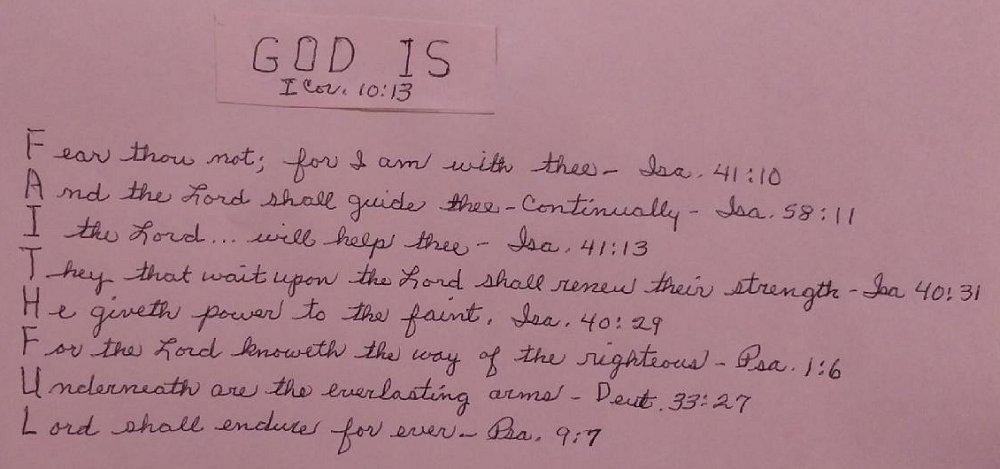 GOD IS
I Cor. 10:13
Fear thou not; for I am with thee - Isa. 41:10
And the Lord shall guide thee - Continually - Isa. 58:11
I the Lord... will help thee - Isa. 41:13
They that wait upon the Lord shall renew their strength - Isa 40:31
He giveth power to the faint. Isa. 40:29
For the Lord knoweth the way of the righteous - Psa. 1:6
Underneath are the everlasting arms - Deut. 33:27
Lord shall endure for ever - Psa. 9:7